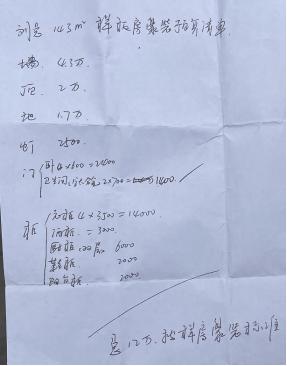 143m² 样板房装装预算清单
墙 4.3万
顶 2万
地 1.7万
灯 2500
门 卧 4×600=2400
卫生间, 2×700=1400
柜 衣柜 4×3500=14000
酒柜 =3000
鞋柜 6000
2000
阳台柜 2000
总12万, 按样房装标准